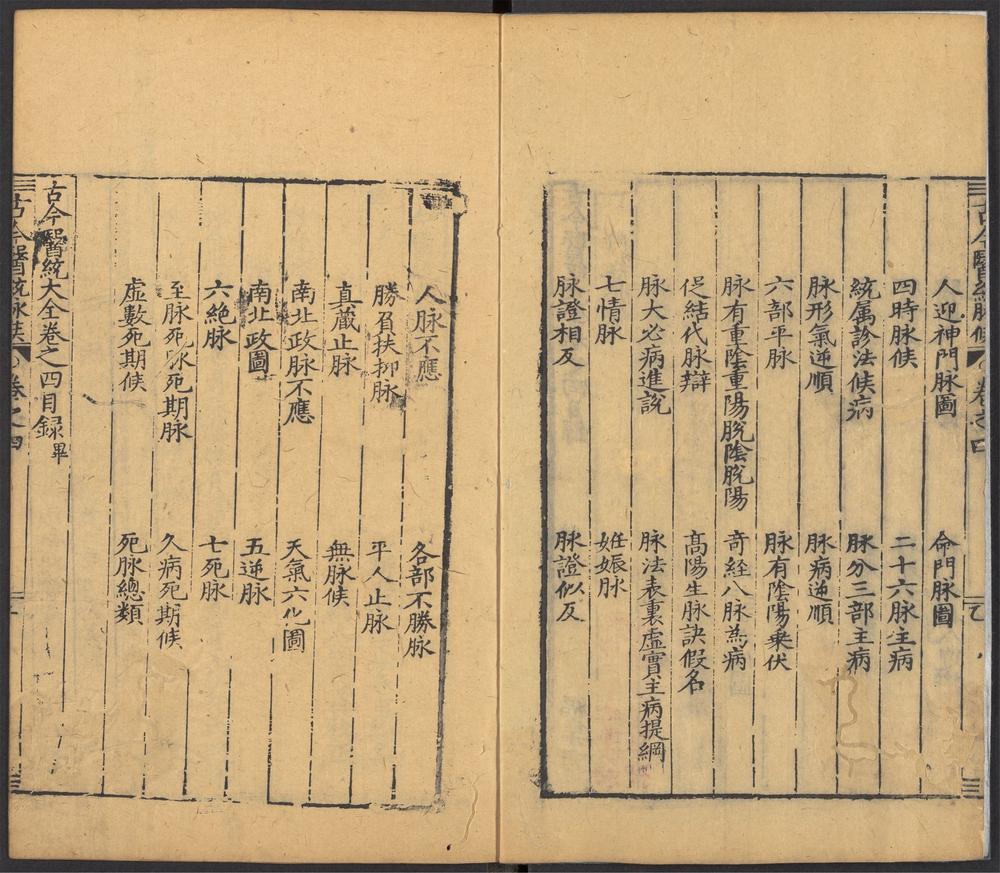 人迎神門脉圖　命門脉圖
四時脉候　二十六脉主病
統属診法候病　脉分三部主病
脉形氣逆順　脉病逆順
六部平脉　脉有陰陽乗伏
脉有重陰重陽脱陰脱陽　竒經八脉為病
促結代脉辯　髙陽生脉訣假名
脉大必病進說　脉法表裏虛實主病提綱
七情脉　姙娠脉
脉證相反　脉證似反
人脉不應　各部不勝脉
勝負扶抑脉　平人止脉
真藏止脉　無脉候
南北政脉不應　天氣六化圖
南北政圖　五逆脉
六絶脉　七死脉
至脉死脉死期脉　久病死期候
虛數死期候　死脉總類
古今醫統大全卷之四目録畢
古今醫統脉候　卷之四